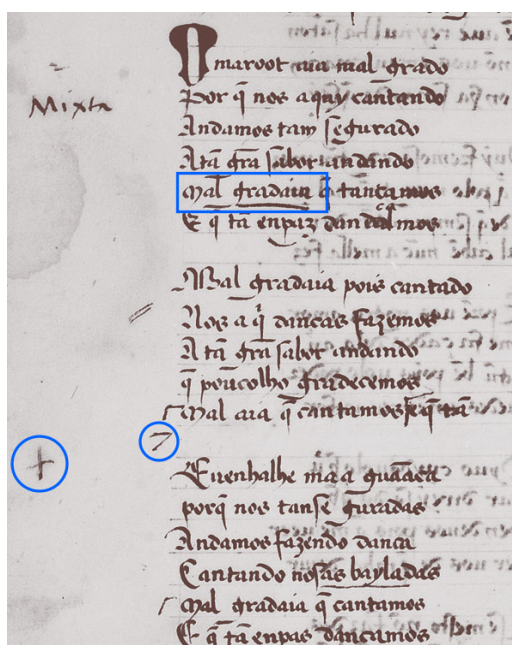 Mixta
Omaroot aia mal grado
Por q̃ nos aquy cantando
Andamos tam segurado
Atã grã sabor andando
Mal gradaia q̃ cantamos
E q̃ tã enpaz dançamos
Mal gradaia pois cantado
Nos aq̃ dancas fazemos
A tã grã sabor andando
q̃ poucolho gradecemos
Mal aia q̃ cantamos e q̃ tã
Euenhalhe maa guaãca
porq̃ nos tan se guradas
Andamos fazendo danca
Cantando nosas bayladas
Mal gradaia q̃ cantamos
E q̃ tã enpas dançamos